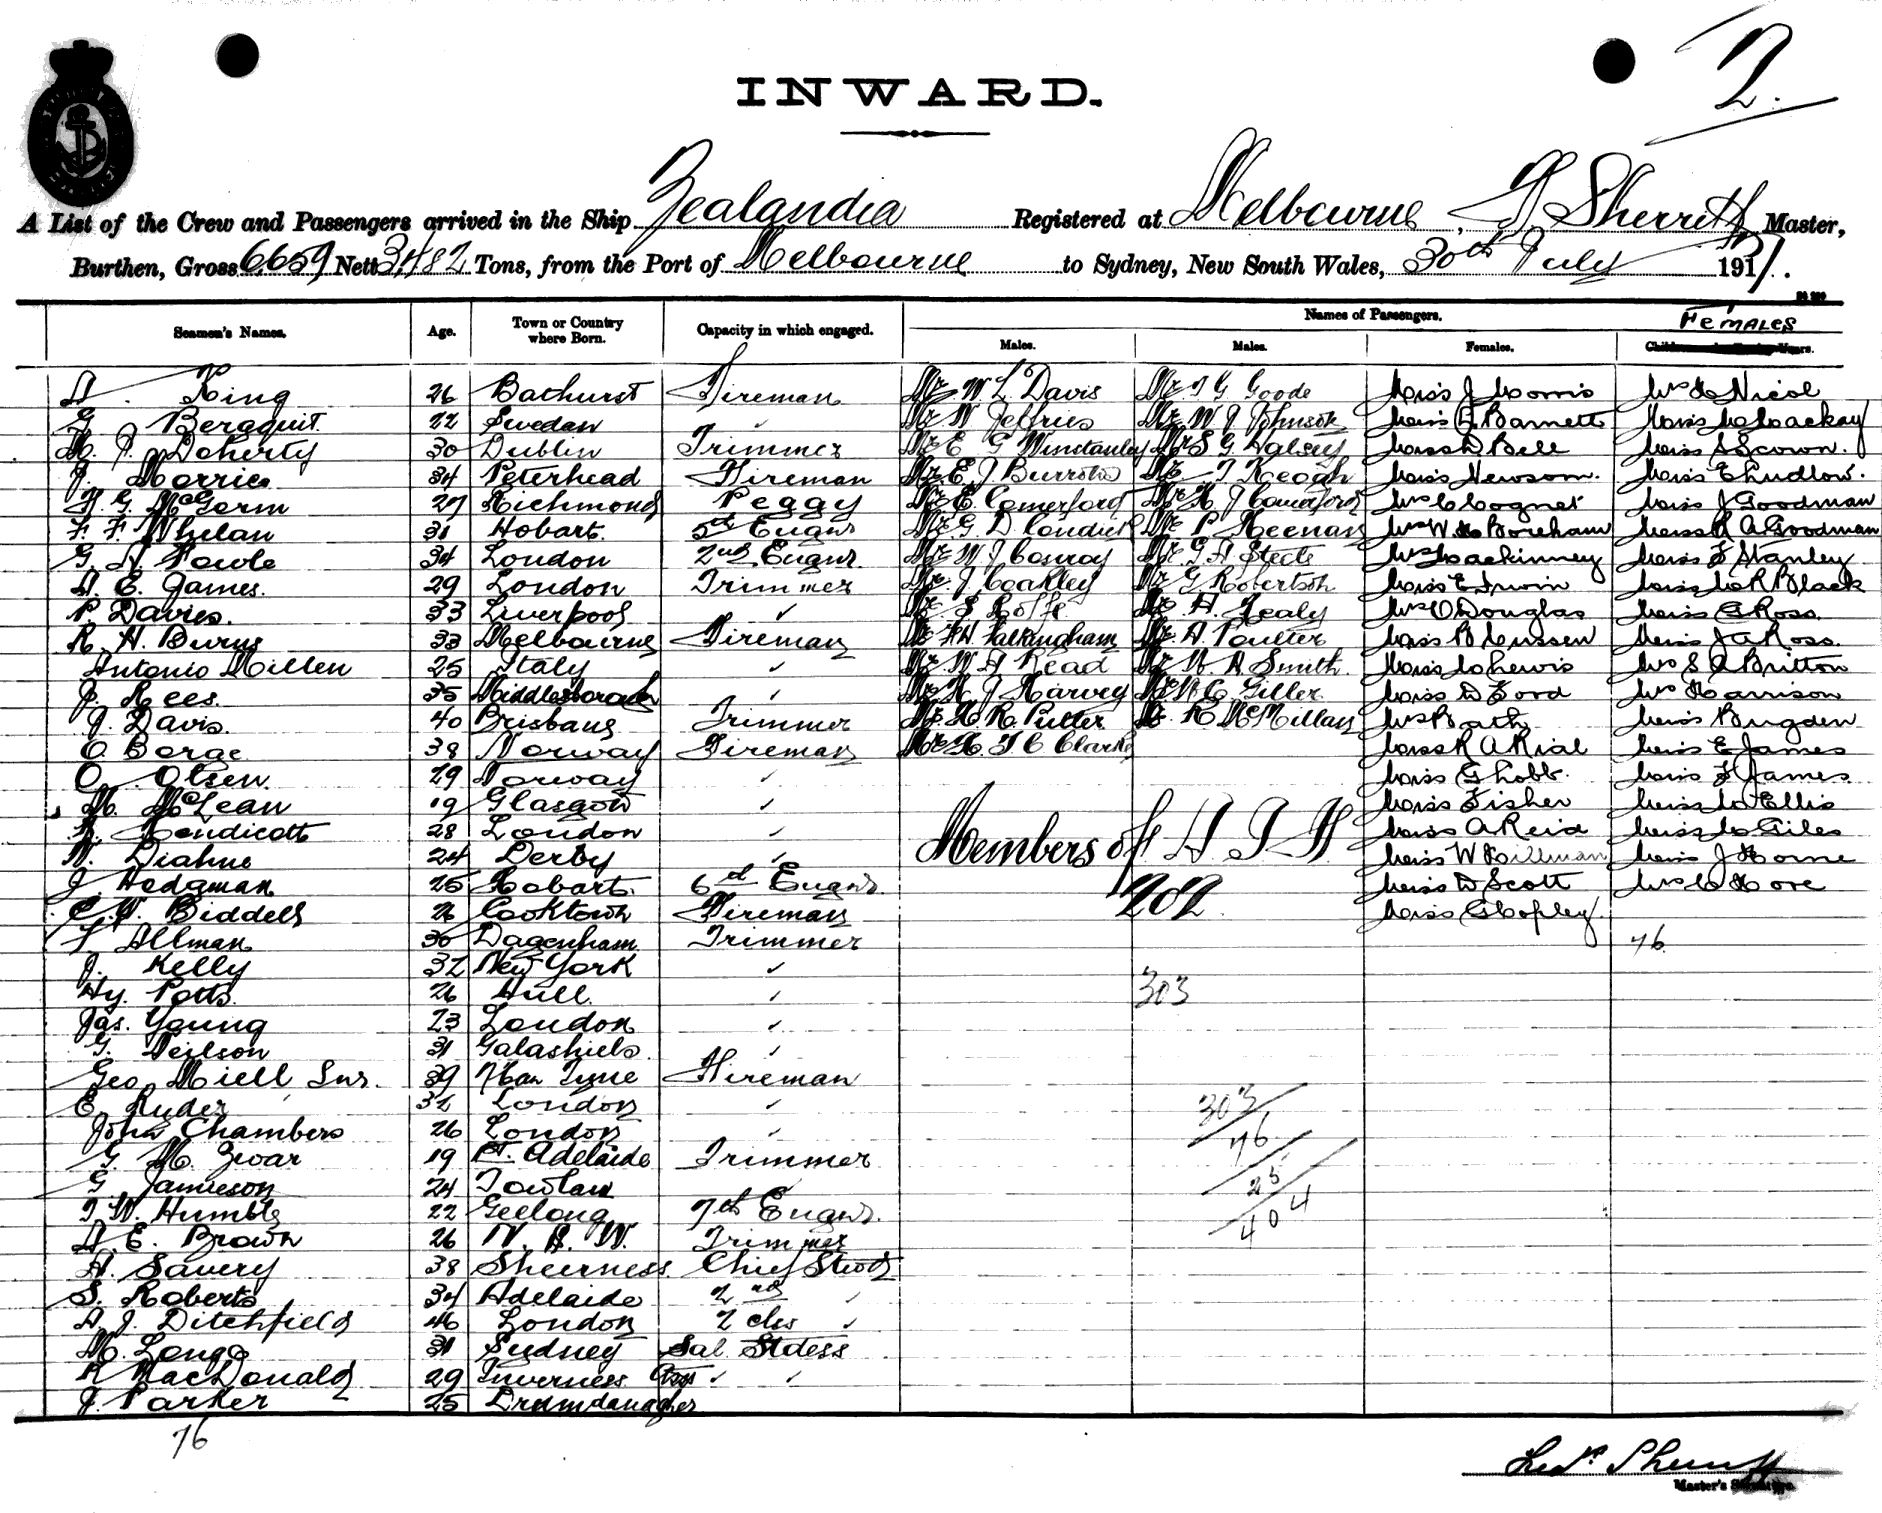 2.
INWARD.
A List of the Crew and Passengers arrived in the Ship Zealandia Registered at Melbourne, Sherritt Master,
Burthen, Gross 6659 Nett 3482 Tons, from the Port of Melbourne to Sydney, New South Wales, 30th July 1917.
Seamen's Names. Age. Town or Country where Born. Capacity in which engaged. Names of Passengers. FEMALES
Males. Males. Females.
King 26 Bathurst Fireman Mr W L Davis Mr T G Goode Miss J Morris Mrs Nicol
G Bergquit. 22 Sweden " Mr W Jeffries Mr W J Johnson Miss Barnett Miss Mackay
M. J. Doherty 30 Dublin Trimmer Mr E G Winstanley Mr S G Halsey Miss D Bell Miss S Scown.
J. Morrice 34 Peterhead Fireman Mr E J Burrows Mr T Keogh Miss Newsom. Miss E Ludlow.
McGerm 27 Richmond Peggy Mr E Comerford Mr J Comerford Mrs C Cognet Miss J Goodman
F. F. Whelan 31 Hobart. 5th Engnr Mr G D Mr P Keenan Mrs W Boreham Miss R A Goodman
G. Fowle 34 London 2nd Engnr. Mr W J Conroy Mr Steele Mrs Mackinney Miss F Stanley
A. E. James. 29 London Trimmer Mr J Coakley Mr G Robertson Miss E Irwin Miss M R Black
P. Davies. 33 Liverpool ✓ Mr S Roffe Mr H. Healy Mrs O Douglas Miss C Ross.
R. H. Burns 33 Melbourne Fireman Mr Falkingham Mr A. Poulter Miss B Cussen Miss J A Ross.
Antonio Millen 25 Italy ✓ Mr W Read Mr W. A Smith. Miss M Lewis Mrs S A Britton
J. Rees. 35 Middlesborough ✓ Mr J Harvey Mr Giller. Miss D Ford Mrs Harrison
J. Davis. 40 Brisbane Trimmer Mr H R Pulter Mr McMillan Mrs Bath Miss Bugden
O Borge 38 Norway Fireman Mr H. T C Clarke Miss R A Rial Miss E James
O. Olsen. 29 Norway ✓ Miss G Miss F James
M. McLean 19 Glasgow ✓ Miss Fisher Miss M Ellis
Hendicott 28 London ✓ Members of A I F Miss A Reid Miss M Giles
24 Derby ✓ Miss W Hillman Miss J Horne
J Hodgman 25 Hobart. 6th Engnr. 202 Miss D Scott Mrs C Hore
C. W. Biddell 26 Cooktown Fireman Miss G Copley.
Allman 30 Dagenham. Trimmer 76.
J. Kelly 32 New York ✓
Hy. Potts. 26 Hull. ✓ 303
Jas. Young 23 London ✓
G. Neilson 31 Galashiels. ✓
Geo. Miell Snr. 39 Tyne Fireman
E. Ryder 32 London ✓ 303
John Chambers 26 London ✓ 76
G. M. Zwar 19 Pt. Adelaide Trimmer
G. Jamieson 24 25
T. W. Humble 22 Geelong 7th Engnr. 404
A. E. Brown 26 N. S. W. Trimmer
A. Savery 38 Sheerness. Chief Stwd
S. Roberts 34 Adelaide 2nd ✓
A. J. Ditchfield 46 London 2 clss ✓
M. Longo 31 Sydney Sal. Stdess
R MacDonald 29 Inverness ✓ ✓
J. Parker 25 Drumdanagher
76
Master's Signature.